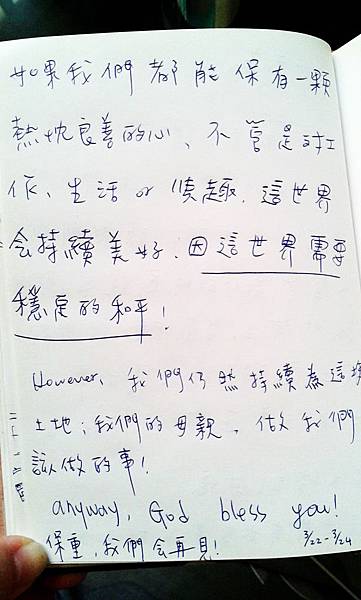 如果我們都能保有一顆
熱忱良善的心、不管是對工
作、生活 or 興趣。這世界
会持續美好.因這世界需要
穩定的和平！
However, 我們仍然持續為這塊
土地；我們的母親、做我們
該做的事！
anyway, God bless you!
保重，我們会再見！
3/22-3/24